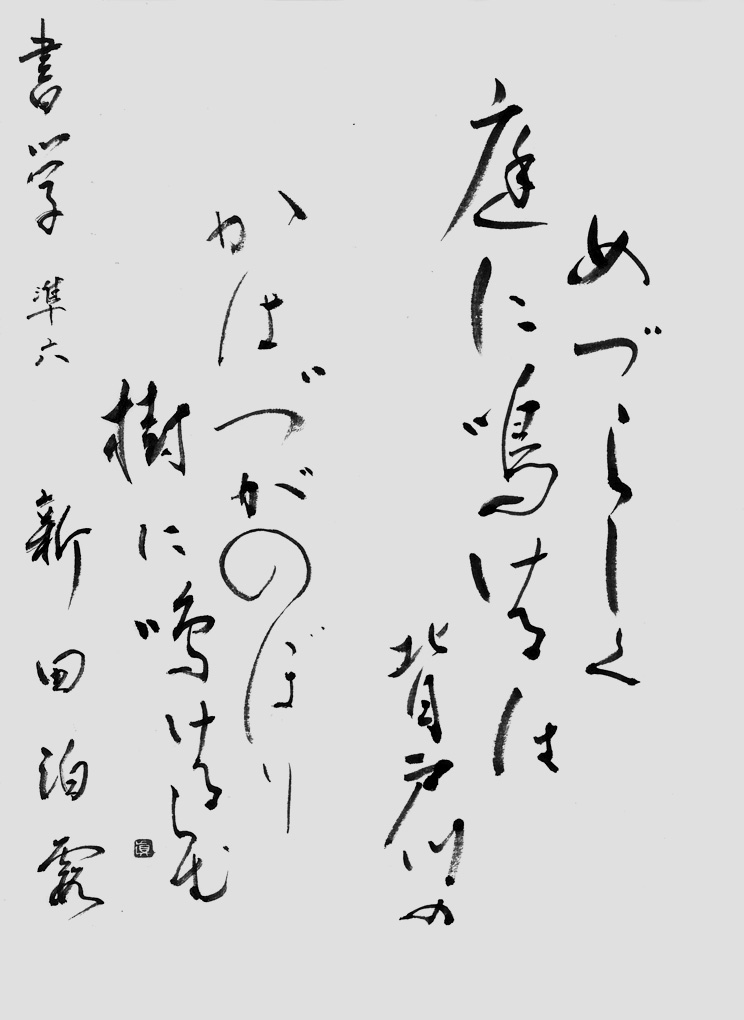 めづらしく
庭に鳴けるは
背戸川の
かはづがのぼり
樹に鳴けるらむ
書学 準六 新田泊露